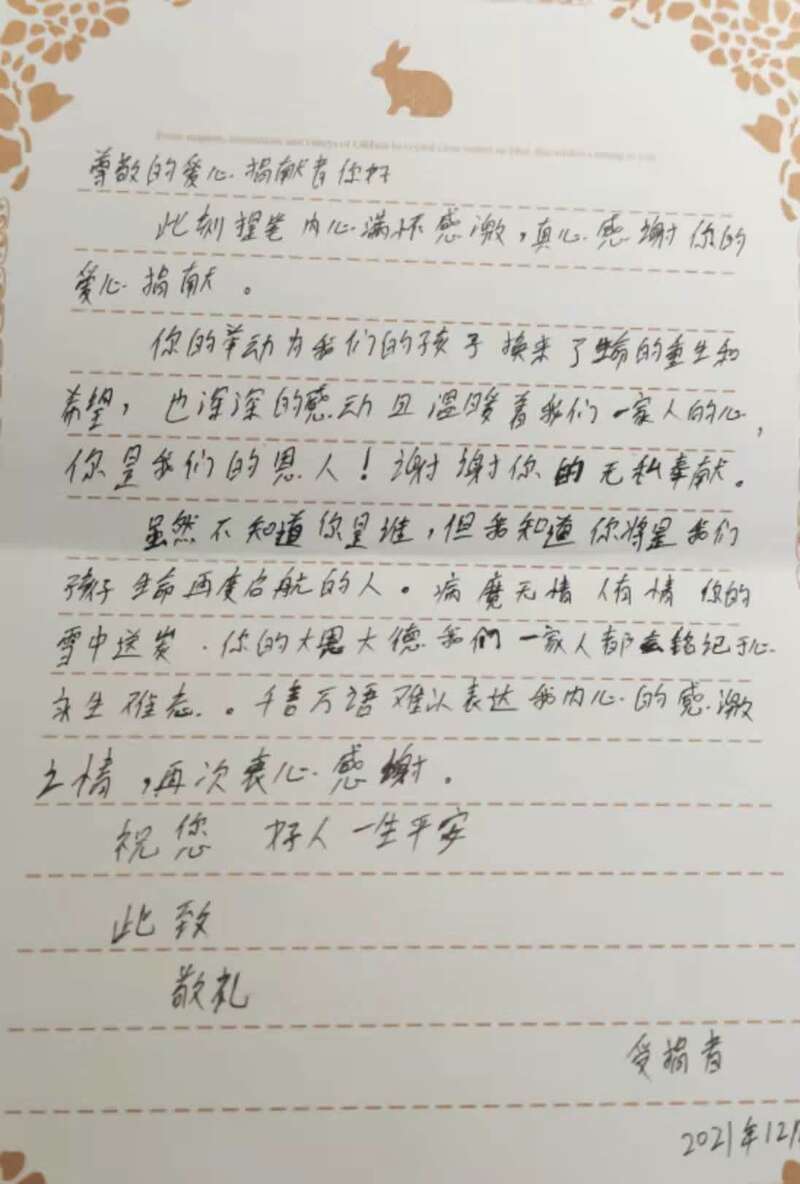 尊敬的爱心捐献者你好
此刻握笔内心满怀感激，真心感谢你的
爱心捐献。
你的举动为我们的孩子换来了生命的重生和
希望，也深深的感动且温暖着我们一家人的心，
你是我们的恩人！谢谢你的无私奉献。
虽然不知道你是谁，但我知道你将是我们
孩子生命再度启航的人。病魔无情人有情你的
雪中送炭．你的大恩大德我们一家人都会铭记于心
永生难忘。千言万语难以表达我内心的感激
之情，再次衷心感谢。
祝您 好人一生平安
此致
敬礼
受捐者
2021年12